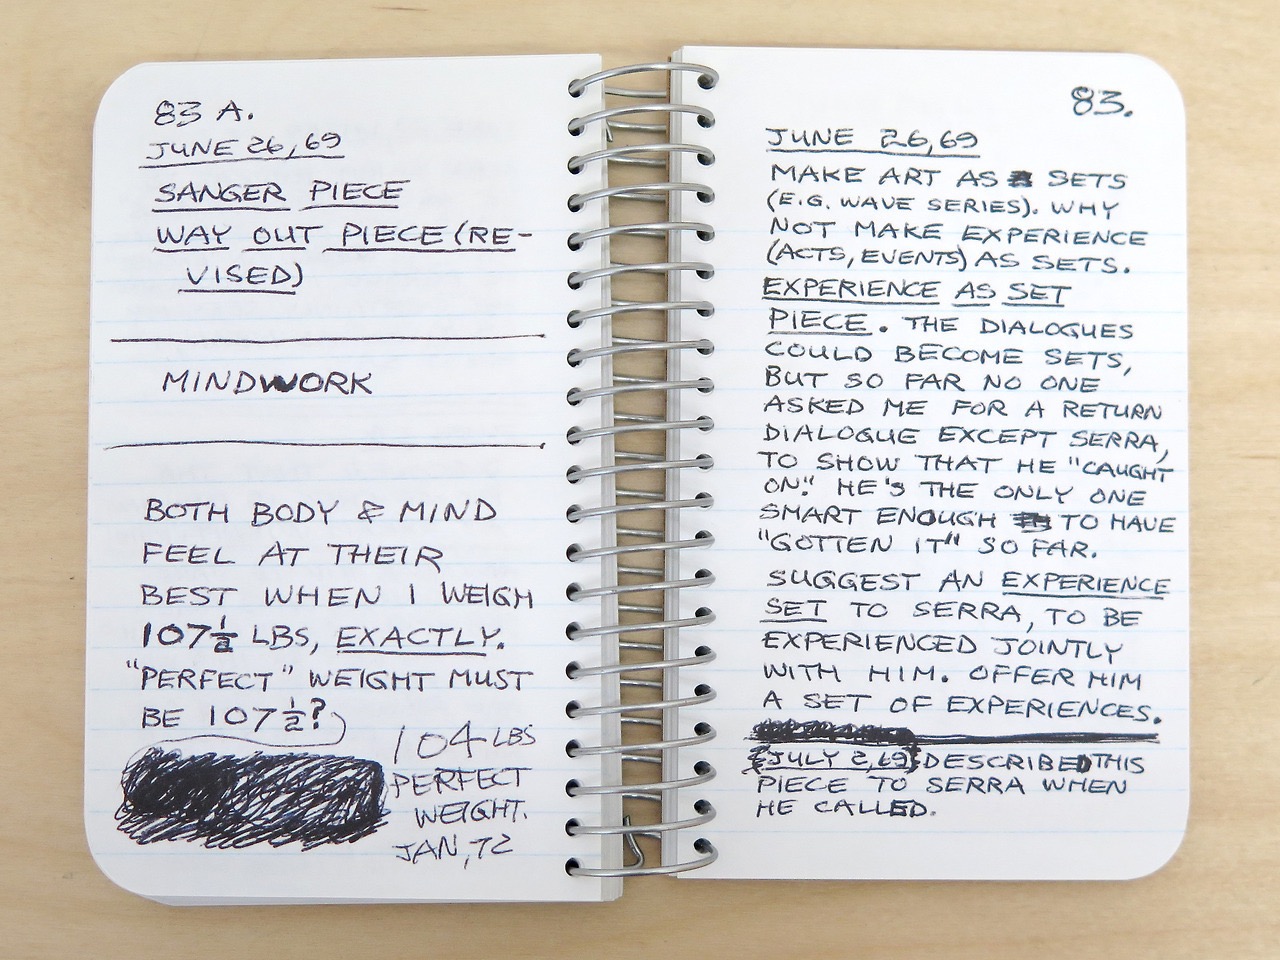 83 A.
JUNE 26, 69
SANGER PIECE
WAY OUT PIECE (RE-
VISED)
MINDWORK
BOTH BODY & MIND
FEEL AT THEIR
BEST WHEN I WEIGH
107½ LBS, EXACTLY.
"PERFECT" WEIGHT MUST
BE 107½?
104 LBS
PERFECT
WEIGHT.
JAN, 72
83.
JUNE 26, 69
MAKE ART AS SETS
(E.G. WAVE SERIES). WHY
NOT MAKE EXPERIENCE
(ACTS, EVENTS) AS SETS.
EXPERIENCE AS SET
PIECE. THE DIALOGUES
COULD BECOME SETS,
BUT SO FAR NO ONE
ASKED ME FOR A RETURN
DIALOGUE EXCEPT SERRA,
TO SHOW THAT HE "CAUGHT
ON." HE'S THE ONLY ONE
SMART ENOUGH TO HAVE
"GOTTEN IT" SO FAR.
SUGGEST AN EXPERIENCE
SET TO SERRA, TO BE
EXPERIENCED JOINTLY
WITH HIM. OFFER HIM
A SET OF EXPERIENCES.
{JULY 2, 69} DESCRIBED THIS
PIECE TO SERRA WHEN
HE CALLED.